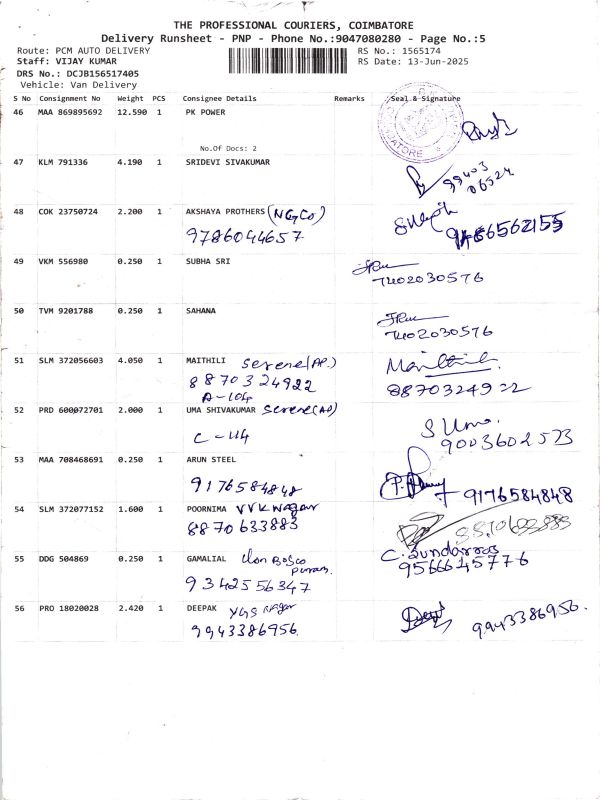 THE PROFESSIONAL COURIERS, COIMBATORE
Delivery Runsheet - PNP - Phone No.:9047080280 - Page No.:5
Route: PCM AUTO DELIVERY
RS No.: 1565174
Staff: VIJAY KUMAR
RS Date: 13-Jun-2025
DRS No.: DCJB156517405
Vehicle: Van Delivery
S No Consignment No Weight PCS Consignee Details Remarks Seal & Signature
46 MAA 869895692 12.590 1 PK POWER
No.Of Docs: 2
47 KLM 791336 4.190 1 SRIDEVI SIVAKUMAR
99403
06524
48 COK 23750724 2.200 1 AKSHAYA PROTHERS (NGGCo)
9786044657 9486562155
49 VKM 556980 0.250 1 SUBHA SRI
7402030576
50 TVM 9201788 0.250 1 SAHANA
7402030576
51 SLM 372056603 4.050 1 MAITHILI Serene(AP.) Maithili
8870324922 8870324922
A-104
52 PRD 600072701 2.000 1 UMA SHIVAKUMAR Serene(AP) S Uma.
C-114 9003602573
53 MAA 708468691 0.250 1 ARUN STEEL
9176584848 9176584848
54 SLM 372077152 1.600 1 POORNIMA VVK Nagar
8870633883 8870633883
55 DDG 504869 0.250 1 GAMALIAL Don Bosco Puram. C. Sundarraj
9342556347 9566645776
56 PRO 18020028 2.420 1 DEEPAK Nagar
9943386956. 9943386956.